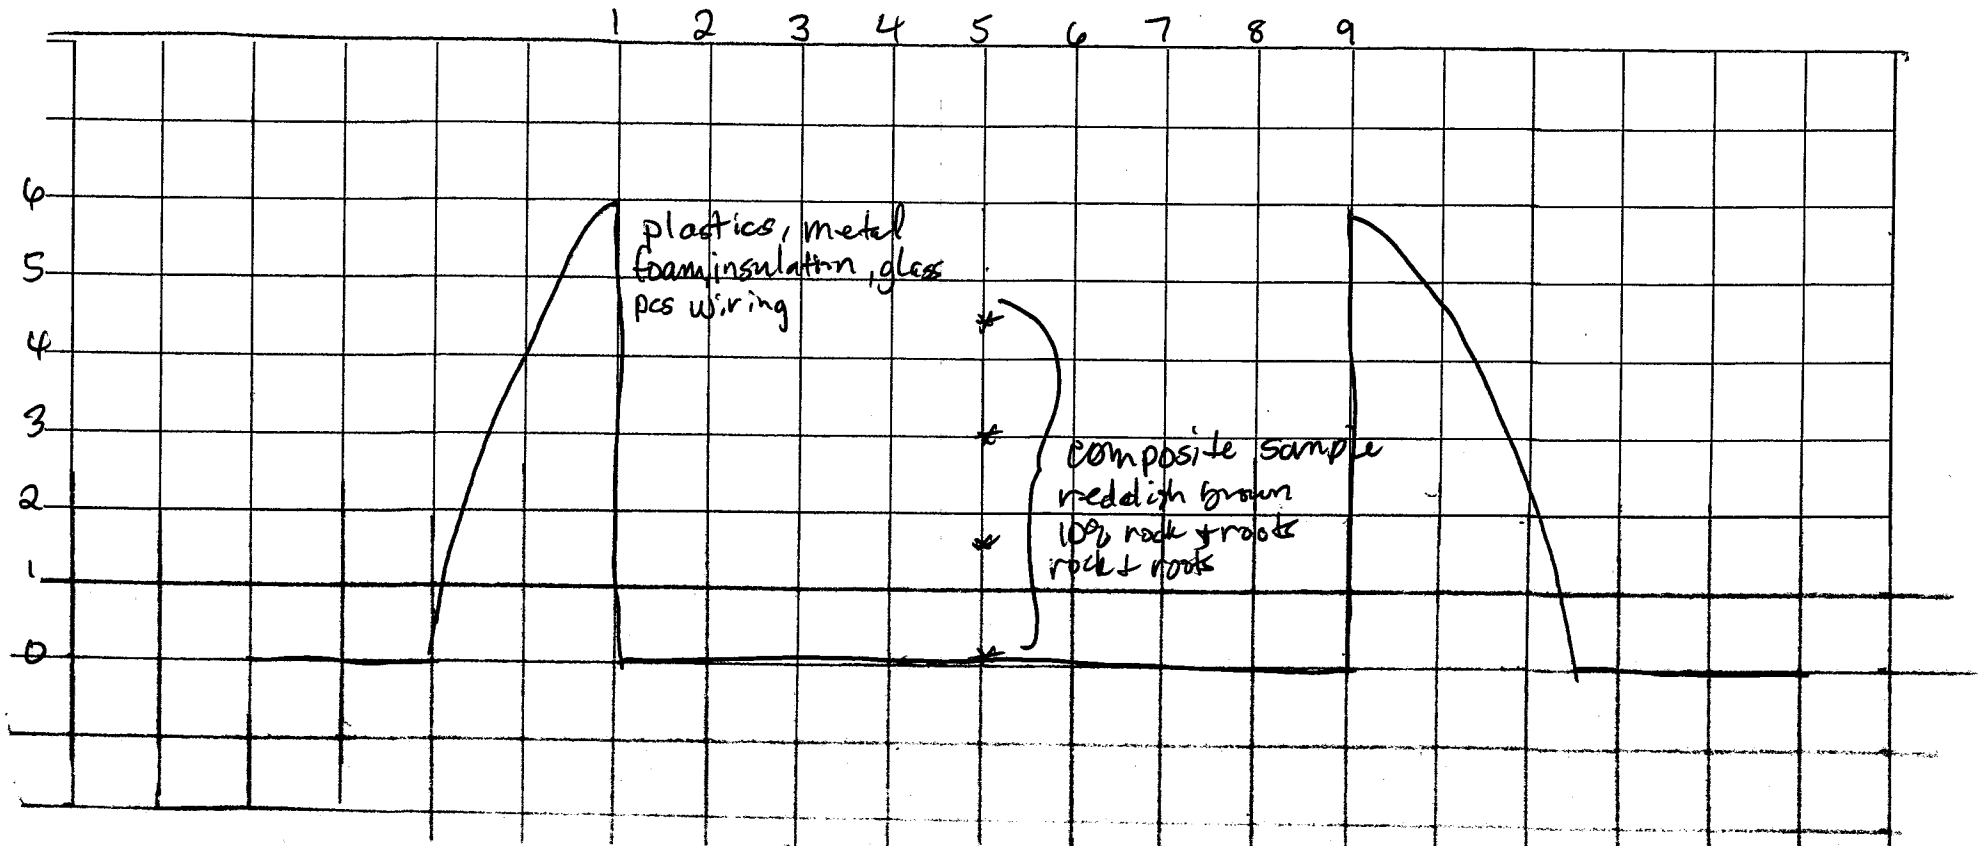 1 2 3 4 5 6 7 8 9
6
plastics, metal
5
foam, insulation, glass
pcs wiring
4
3
composite sample
reddish brown
2
10% rock & roots
rock & roots
1
0